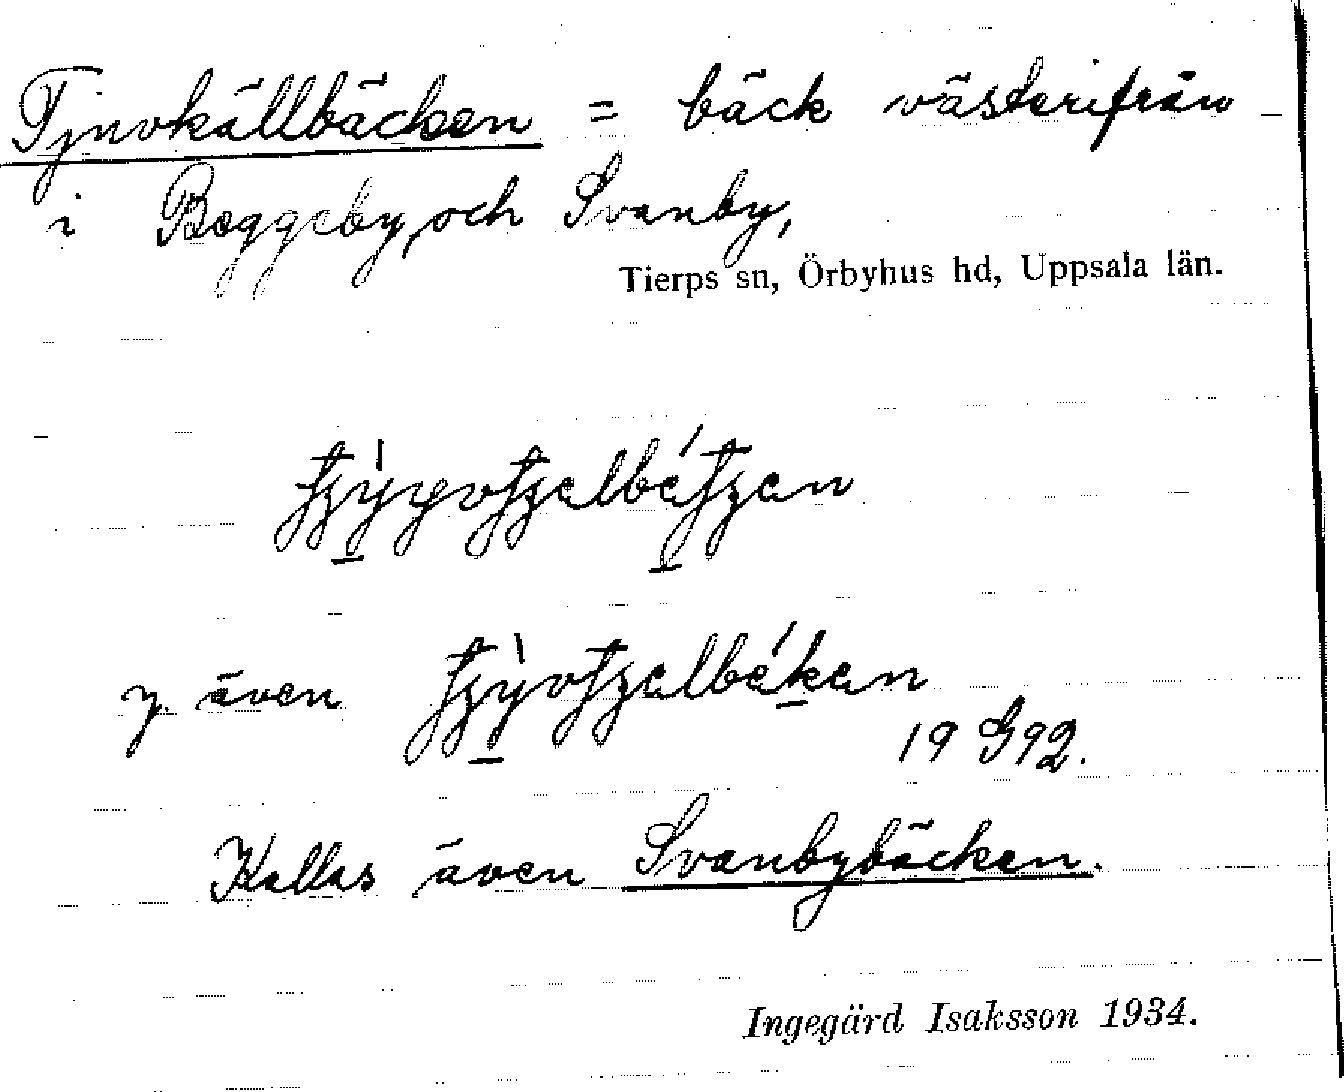 Tjuvkällbäcken = bäck västerifrån
i Beggeby och Svanby,
Tierps sn, Örbyhus hd, Uppsala län.
y. även
19 G92.
Kallas även Svanbybäcken.
Ingegärd Isaksson 1934.